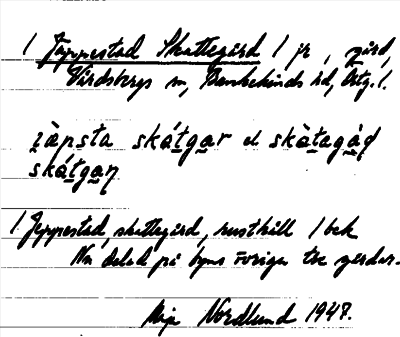 1 Jäppestad Skattegård 1 jr, gård,
Vårdsbergs sn, Bankekinds hd, Östg. l.
zàpsta skátgar el skàtagàd
skátgaņ
1 Jeppestad, skattegård, rusthåll 1 bek
Nu delad på byns övriga tre gårdar.
Nordlund 1947.